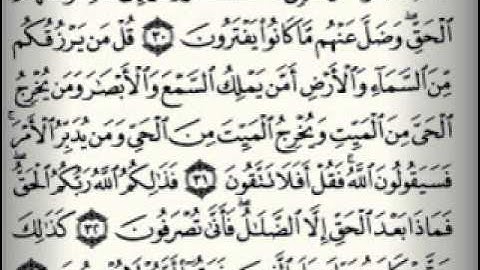 ٱلْحَقِّ وَضَلَّ عَنْهُم مَّا كَانُوا۟ يَفْتَرُونَ ٣٠ قُلْ مَن يَرْزُقُكُم
مِّنَ ٱلسَّمَآءِ وَٱلْأَرْضِ أَمَّن يَمْلِكُ ٱلسَّمْعَ وَٱلْأَبْصَٰرَ وَمَن يُخْرِجُ
ٱلْحَىَّ مِنَ ٱلْمَيِّتِ وَيُخْرِجُ ٱلْمَيِّتَ مِنَ ٱلْحَىِّ وَمَن يُدَبِّرُ ٱلْأَمْرَ ۚ
فَسَيَقُولُونَ ٱللَّهُ ۚ فَقُلْ أَفَلَا تَتَّقُونَ ٣١ فَذَٰلِكُمُ ٱللَّهُ رَبُّكُمُ ٱلْحَقُّ ۖ
فَمَاذَا بَعْدَ ٱلْحَقِّ إِلَّا ٱلضَّلَٰلُ ۖ فَأَنَّىٰ تُصْرَفُونَ ٣٢ كَذَٰلِكَ